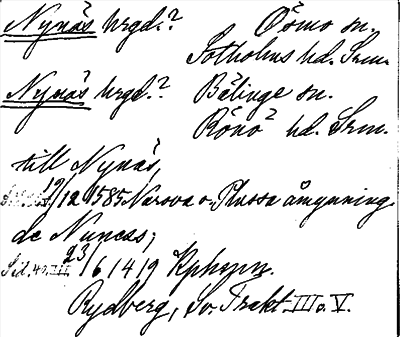 Nynäs hrgd.? Ösmo sn.
Sotholms hd. Srm.
Nynäs hrgd.? Bälinge sn.
Rönö hd. Srm.
till Nynäs,
19/12 1585 Narova o. Plussa åmynning
de Nuness;
Sid. 40. III 23/6 1419 Kphmn.
Rydberg, Sv. Trakt. III o. V.